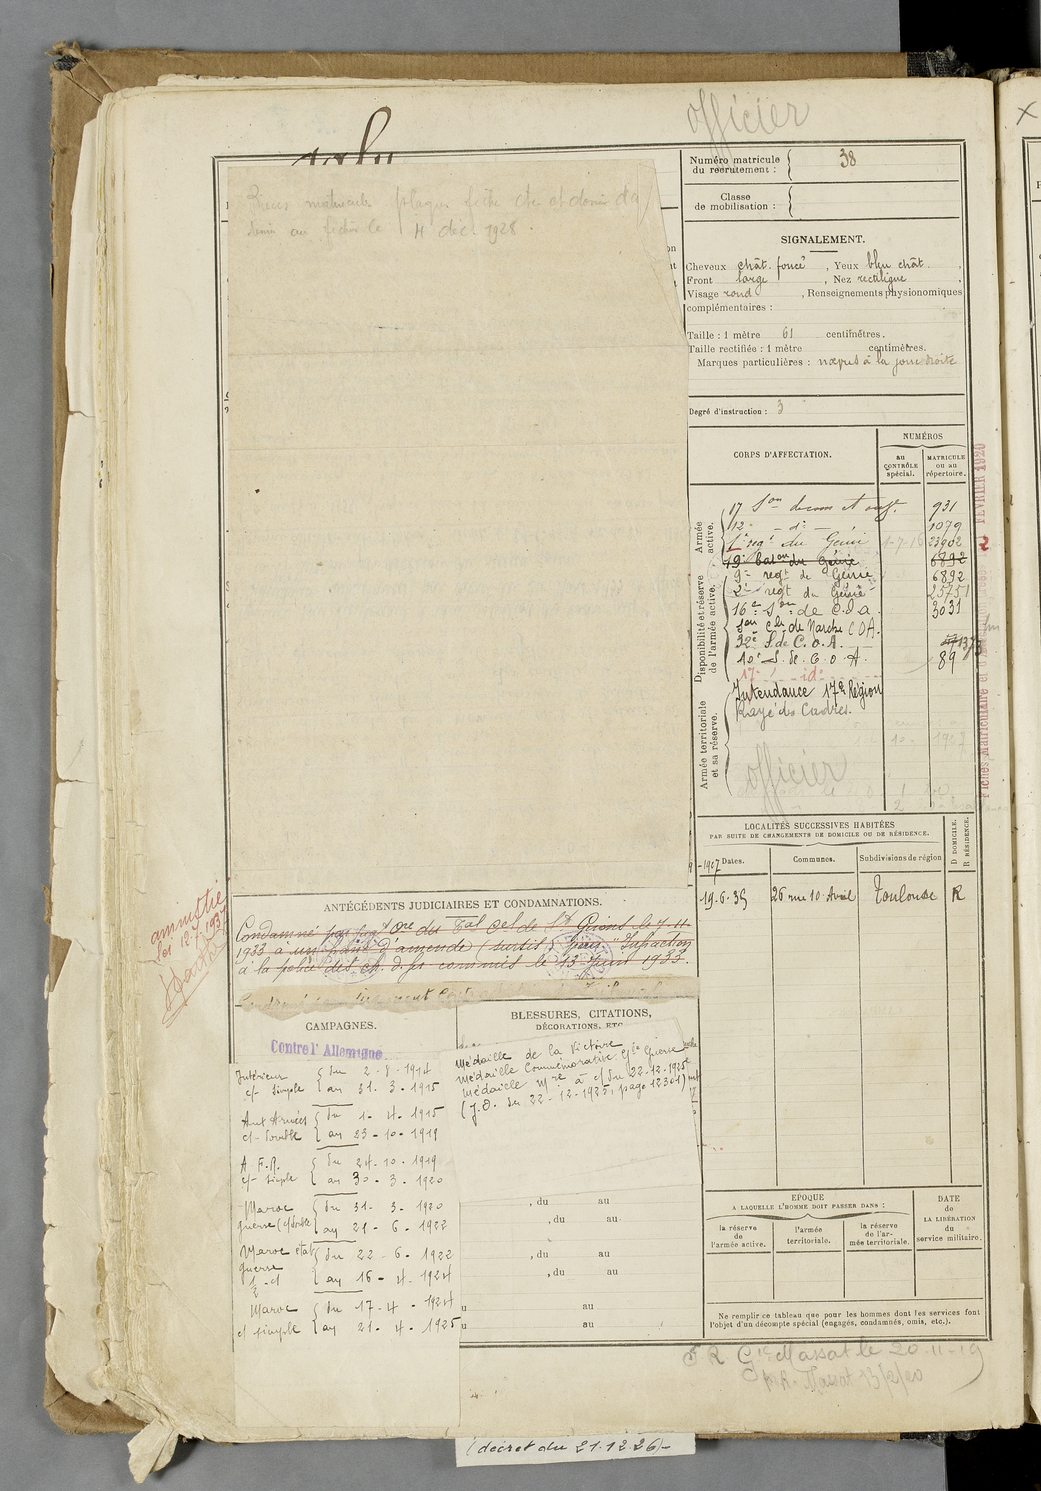 officier
Pièces matricule plaque fiche etc
au fichier le 4 déc 1928.
Numéro matricule
du recrutement : 38
Classe
de mobilisation :
SIGNALEMENT.
Cheveux chât. foncé, Yeux bleu chât.,
Front large, Nez rectiligne,
Visage rond, Renseignements physionomiques
complémentaires :
Taille : 1 mètre 61 centimètres.
Taille rectifiée : 1 mètre centimètres.
Marques particulières : à la joue droite
Degré d'instruction : 3
CORPS D'AFFECTATION.
NUMÉROS
au
CONTRÔLE
spécial.
MATRICULE
ou au
répertoire.
Armée
active.
17 Son 931
12e - d° - 1079
1er regt du Génie 23902
19e baton du Génie 6892
Disponibilité et réserve
de l'armée active.
9e regt de Génie 6892
2e regt du Génie 25751
16e Son de C.O.A. 3031
Son Cle de Marche COA.
32e S. de C.O.A.
10e S. de C.O.A. 89
17 id°
Armée territoriale
et sa réserve.
Intendance 17e Région
Rayé des Cadres.
officier
LOCALITÉS SUCCESSIVES HABITÉES
PAR SUITE DE CHANGEMENTS DE DOMICILE OU DE RÉSIDENCE.
Dates.
Communes.
Subdivisions de région
D DOMICILE.
R RÉSIDENCE.
19-6-35 26 rue 10 Avril Toulouse R
ANTÉCÉDENTS JUDICIAIRES ET CONDAMNATIONS.
Condamné par jugt Cre du Tal Cel de St Girons le 7-11-
1933 à un franc d'amende (sursis) pour Infraction
à la police des ch. d. fer commis le 13 Juin 1933.
amnistie
loi 12.7.1937
CAMPAGNES.
Contre l'Allemagne
Intérieur du 2-8-1914
c/- simple au 31-3-1915
Aux Armées du 1-4-1915
c/- double au 23-10-1919
A.F.N. du 24-10-1919
c/- simple au 30-3-1920
Maroc du 31-3-1920
guerre (c/double au 21-6-1922
Maroc état du 22-6-1922
guerre
1/2 -c/ au 16-4-1924
Maroc du 17-4-1924
c/ simple au 21-4-1925
BLESSURES, CITATIONS,
DÉCORATIONS, ETC
Médaille de la Victoire
Médaille Commémorative Gde Guerre
Médaille Mre à c/ du 22-12-1925
(J.O. du 22-12-1925, page 12301)
, du au
, du au
, du au
, du au
au
au
EPOQUE
A LAQUELLE L'HOMME DOIT PASSER DANS :
la réserve
de
l'armée active.
l'armée
territoriale.
la réserve
de l'ar-
mée territoriale.
DATE
de
LA LIBÉRATION
du
service militaire.
Ne remplir ce tableau que pour les hommes dont les services font
l'objet d'un décompte spécial (engagés, condamnés, omis, etc.).
R Gie Massat le 20-11-19
Massat 13/2/20
(décret du 21.12.26)-